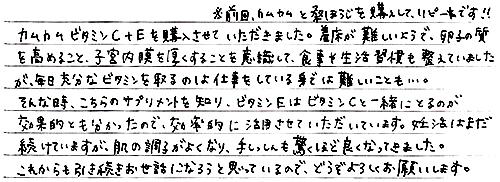 ※前回、カムカムと発ほうじを購入して、リピートです!!
カムカムビタミンC+Eを購入させていただきました。着床が難しいようで、卵子の質
を高めること、子宮内膜を厚くすることを意識して、食事や生活習慣も整えていました
が、毎日充分なビタミンを取るのは仕事をしている身では難しいことも…。
そんな時、こちらのサプリメントを知り、ビタミンEはビタミンCと一緒にとるのが
効果的とも分かったので、効率的に活用させていただいています。妊活はまだ
続けていますが、肌の調子がよくなり、手しっしんも驚くほど良くなってきました。
これからも引き続きお世話になろうと思っているので、どうぞよろしくお願いします。